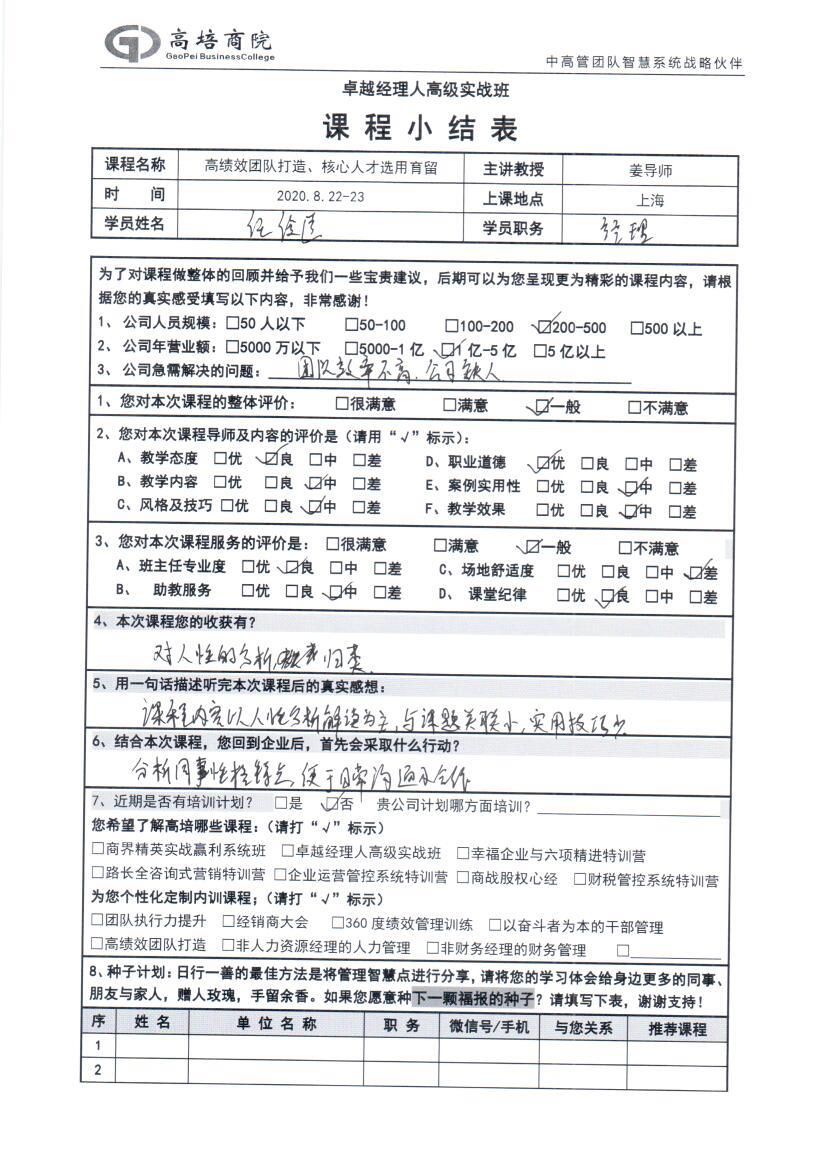 高培商院
GaoPei BusinessCollege
中高管团队智慧系统战略伙伴
卓越经理人高级实战班
课程小结表
课程名称 高绩效团队打造、核心人才选用育留 主讲教授 姜导师
时 间 2020.8.22-23 上课地点 上海
学员姓名 任 学员职务 经理
为了对课程做整体的回顾并给予我们一些宝贵建议，后期可以为您呈现更为精彩的课程内容，请根
据您的真实感受填写以下内容，非常感谢！
1、 公司人员规模：□50 人以下 □50-100 □100-200 ☑200-500 □500 以上
2、 公司年营业额：□5000 万以下 □5000-1 亿 ☑1 亿-5 亿 □5 亿以上
3、 公司急需解决的问题：团队效率不高，公司缺人
1、您对本次课程的整体评价： □很满意 □满意 ☑一般 □不满意
2、您对本次课程导师及内容的评价是（请用“√”标示）：
A、教学态度 □优 ☑良 □中 □差 D、职业道德 ☑优 □良 □中 □差
B、教学内容 □优 □良 ☑中 □差 E、案例实用性 □优 □良 ☑中 □差
C、风格及技巧 □优 □良 ☑中 □差 F、教学效果 □优 □良 ☑中 □差
3、您对本次课程服务的评价是： □很满意 □满意 ☑一般 □不满意
A、班主任专业度 □优 ☑良 □中 □差 C、场地舒适度 □优 □良 □中 ☑差
B、 助教服务 □优 □良 ☑中 □差 D、 课堂纪律 □优 ☑良 □中 □差
4、本次课程您的收获有？
对人性的分析，归类
5、用一句话描述听完本次课程后的真实感想：
课程内容以人性分析解读为主，与课题关联小，实用技巧少
6、结合本次课程，您回到企业后，首先会采取什么行动？
分析同事性格特点，便于日常沟通及合作
7、近期是否有培训计划？ □是 ☑否 贵公司计划哪方面培训？
您希望了解高培哪些课程：（请打“√”标示）
□商界精英实战赢利系统班 □卓越经理人高级实战班 □幸福企业与六项精进特训营
□路长全咨询式营销特训营 □企业运营管控系统特训营 □商战股权心经 □财税管控系统特训营
为您个性化定制内训课程；（请打“√”标示）
□团队执行力提升 □经销商大会 □360 度绩效管理训练 □以奋斗者为本的干部管理
□高绩效团队打造 □非人力资源经理的人力管理 □非财务经理的财务管理 □
8、种子计划：日行一善的最佳方法是将管理智慧点进行分享，请将您的学习体会给身边更多的同事、
朋友与家人，赠人玫瑰，手留余香。如果您愿意种下一颗福报的种子？请填写下表，谢谢支持！
序 姓 名 单 位 名 称 职 务 微信号/手机 与您关系 推荐课程
1
2